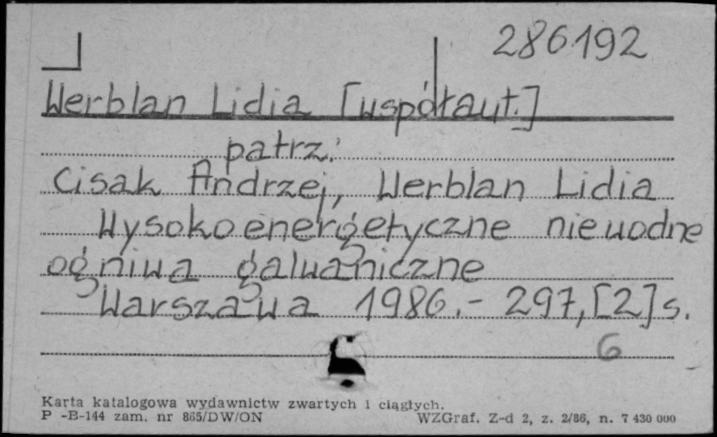 286192
Werblan Lidia [współaut.]
patrz:
Cisak Andrzej, Werblan Lidia
Wysokoenergetyczne niewodne
ogniwa galwaniczne
Warszawa 1986.- 297, [2] s.
6
Karta katalogowa wydawnictw zwartych i ciągłych.
P -B-144 zam. nr 865/DW/ON WZGraf. Z-d 2, z. 2/86, n. 7 430 000